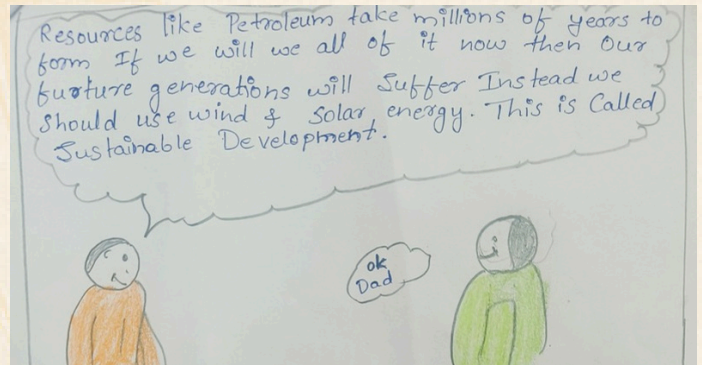 Resources like Petroleum take millions of years to
form If we will we all of it now then Our
furture generations will Suffer Instead we
Should use wind & Solar energy. This is Called
Sustainable Development.
ok
Dad